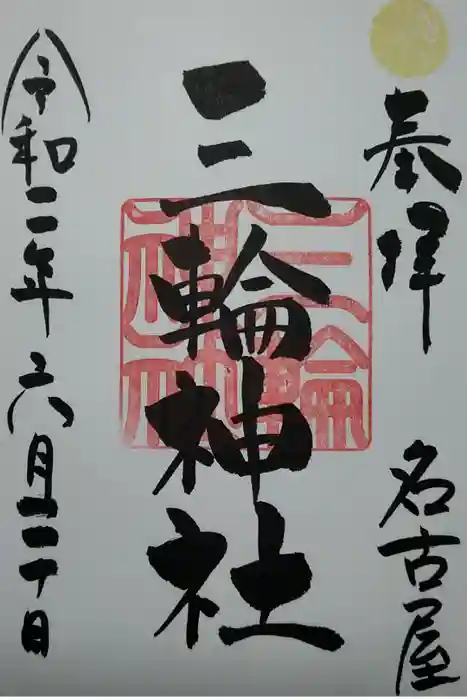 奉拝 名古屋
三輪神社
令和二年六月二十日
三輪
神社